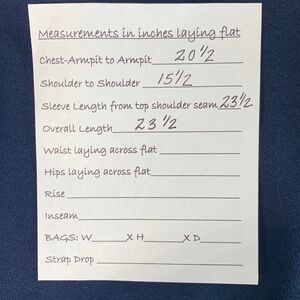 Measurements in inches laying flat
Chest-Armpit to Armpit 20 1/2
Shoulder to Shoulder 15 1/2
Sleeve Length from top shoulder seam 23 1/2
Overall Length 23 1/2
Waist laying across flat
Hips laying across flat
Rise
Inseam
BAGS: W X H X D
Strap Drop